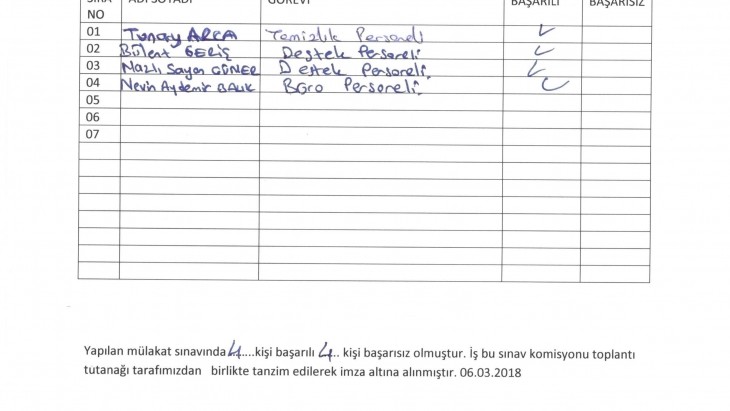 SIRA ADI SOYADI GÖREVİ BAŞARILI BAŞARISIZ
NO
01 Tunay ARCA Temizlik Personeli
02 Bülent GERİŞ Destek Personeli
03 Nazlı Sayan GÜNER Destek Personeli
04 Nevin Aydemir BALIK Büro Personeli
05
06
07
Yapılan mülakat sınavında 4....kişi başarılı 4.. kişi başarısız olmuştur. İş bu sınav komisyonu toplantı
tutanağı tarafımızdan birlikte tanzim edilerek imza altına alınmıştır. 06.03.2018